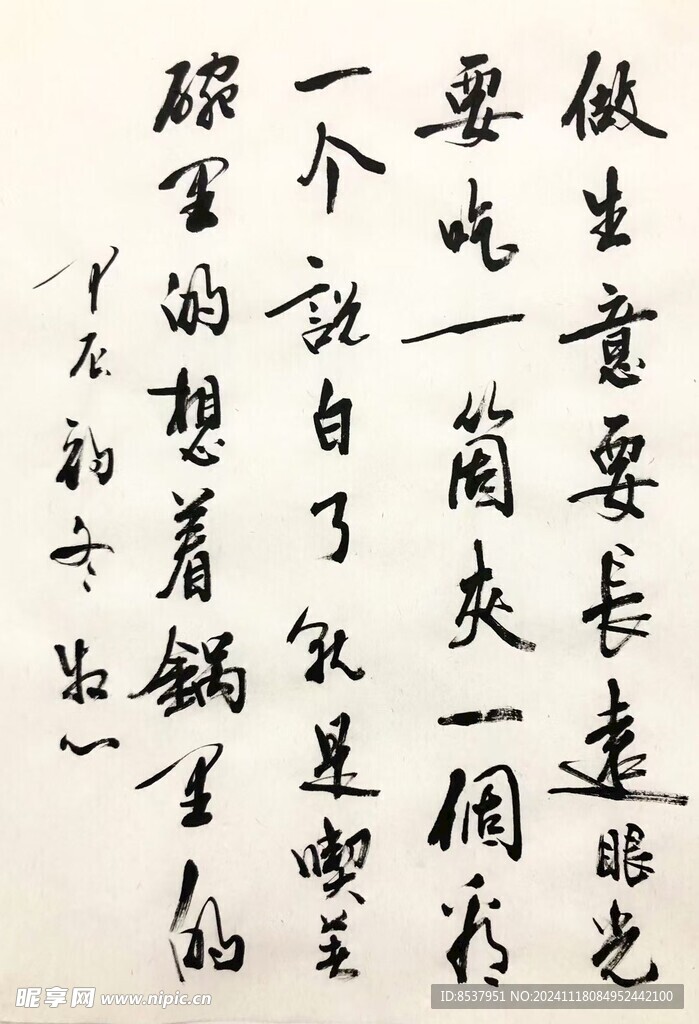 做生意要長遠眼光
要吃一箇夾一個看
一个説白了就是喫着
碗里的想着鍋里的
甲辰初冬牧心
昵享网 www.nipic.cn
ID:8537951 NO:20241118084952442100